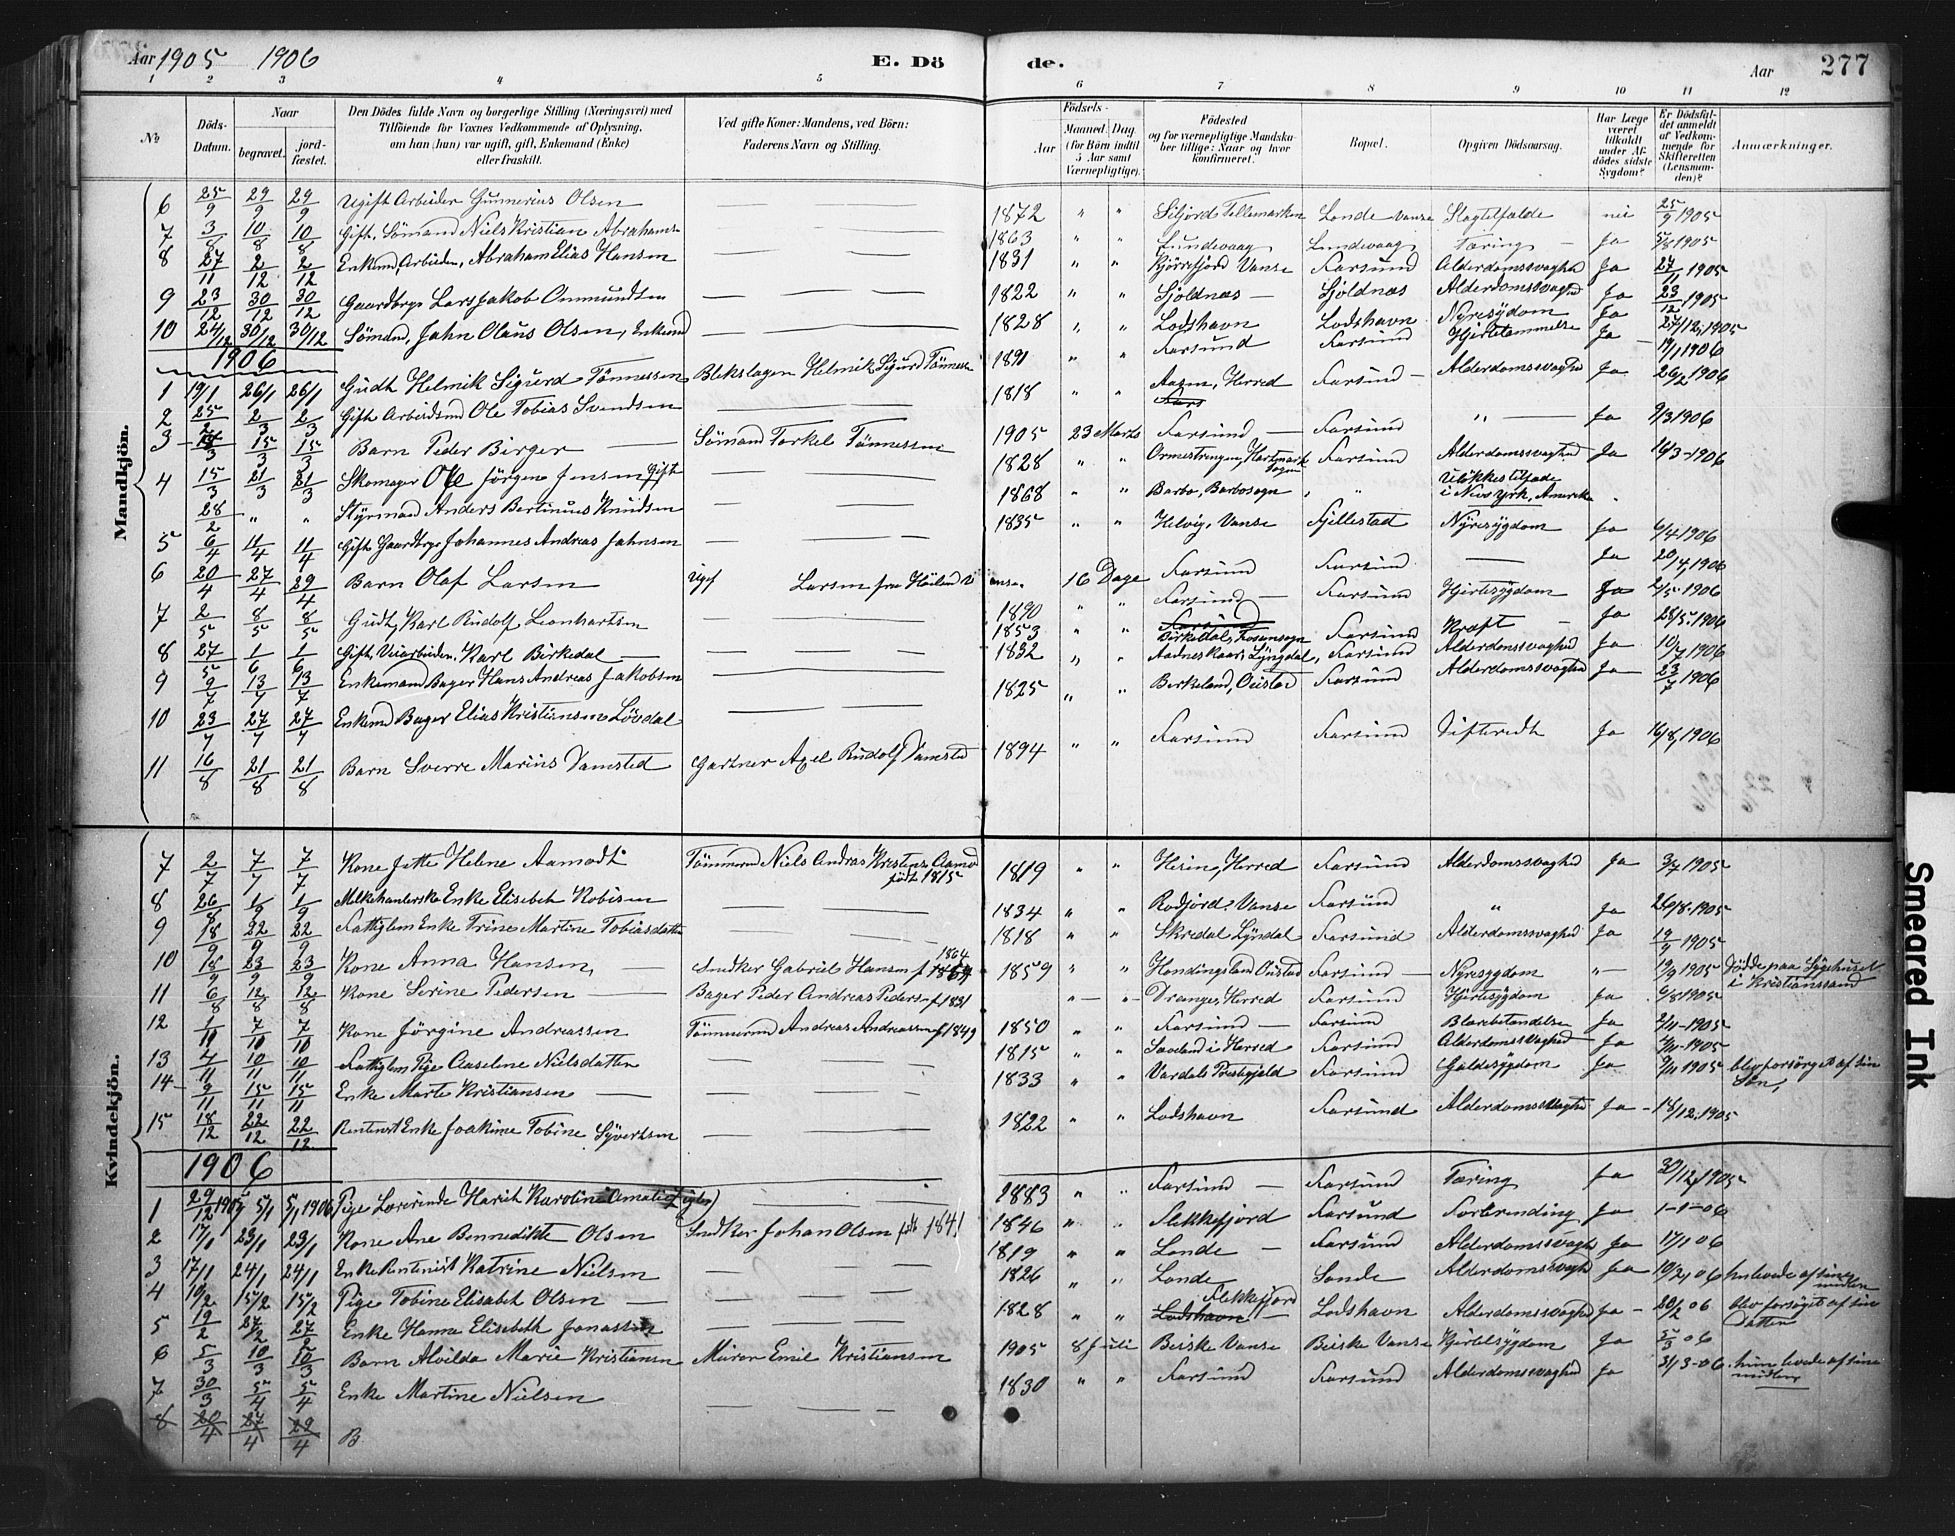 Aar 1905 1906 E. Dö de. Aar 277
1 2 3 4 5 6 7 8 9 10 11 12
№
Döds-Datum.
Naar begravet. jordfæstet.
Den Dödes fulde Navn og borgerlige Stilling (Næringsvei) med Tilföiende for Voxnes Vedkommende af Oplysning, om han (hun) var ugift, gift, Enkemand (Enke) eller fraskilt.
Ved gifte Koner: Mandens, ved Börn: Faderens Navn og Stilling.
Födsels- Aar Maaned. Dag. (for Börn indtil 5 Aar samt Værnepligtige).
Födested og for værnepligtige Mandskaber tillige: Naar og hvor konfirmeret.
Bopæl.
Opgiven Dödsaarsag.
Har Læge været tilkaldt under Afdödes sidste Sygdom?
Er Dödsfaldet anmeldt af Vedkommende for Skifteretten (Lensmanden)?
Anmærkninger.
Mandkjön.
6 25/9 29/9 29/9 Ugift Arbeider Gunnerius Olsen — 1872 " " Siljord Tellemarken Lande Vanse Slagtilfælde nei 25/9 1905
7 3/8 10/8 10/8 Gift, Sömand Niels Kristian Abrahams — 1863 " " Lundevaag Lundevaag Tæring — Ja 5/8 1905
8 27/11 2/12 2/12 Enkemd, Arbeider, Abraham Elias Hansen — 1831 " " Kjörrefjord Vanse Farsund Alderdomssvaghed Ja 27/11 1905
9 23/12 30/12 30/12 Gaardbrge Lars Jakob Ommundsen — 1822 " " Sjöldnæs — Sjöldnæs Alderdomssvaghed Ja 23/12 1905
10 24/12 30/12 30/12 Sömand, Jahn Olaus Olsen, Enkemd — 1828 " " Lodshavn Lodshavn Nyresygdom Ja 27/12 1905
1906
1 19/1 26/1 26/1 Gudt Helmik Sigurd Tönnessen Blekslagen Helmik Sigurd Tönnesen 1891 " " Farsund Farsund Hjertelammelse Ja — 19/1 1906
2 25/2 2/3 2/3 Gift Arbeidsmd Ole Tobias Svendsen — 1818 " " Aasen, Herred Farsund — Alderdomssvaghed Ja 26/2 1906
3 15/3 15/3 Barn Peder Birger — Sömand Torkel Tönnessen 1905 23 Marts Farsund — Farsund " — Ja 9/3 1906
4 15/3 21/3 21/3 Skomager Ole Jörgen Jensen Gift — 1828 " " Hartmark Sogn Farsund Alderdomssvaghed Ja 16/3-1906
28/2 " " Styrmand Anders Bertinius Knudsen — 1868 " " Barbo, Barbosogn " " Ulökkestilfæde i New York, Amerika
5 6/4 11/4 11/4 Gift Gaardbrge Johannes Andreas Jahnsen — 1835 " " Helvig, Vanse Fjellestad Nyresygdom Ja 6/4 1906
6 20/4 27/4 29/4 Barn Olaf Larsen Ugif Larsen fra Höiland Vanse. 16 Dage Farsund Farsund — Ja 20/4, 1906
7 2/5 8/5 8/5 Gudt, Karl Rudolf Leonhartsen — 1890 " " Farsund — Farsund Hjertesygdom Ja 2/5 1906
8 27/5 1/6 1/6 Gift, Veiarbeider. Karl Birkedal — 1853 " " Birkedal, Fosensogn Farsund Kræft — Ja 28/5 1906
9 9/7 13/7 13/7 Enkemand Bager Hans Andreas Jakobsen — 1832 " " Aadneskaar, Lyngdal, Farsund Alderdomssvaghed Ja 10/7 1906
10 23/7 27/7 27/7 Enkemd Bager Elias Kristiansen Lövdal — 1825 " " Birkeland, Ovistad Farsund Alderdomssvaghed Ja 23/7 1906
11 16/8 21/8 21/8 Barn Sverre Marius Vamsted Gartner Axel Rudolf Vamsted 1894 " " Farsund Farsund Difteridt Ja 16/8, 1906
Kvindekjön.
7 2/7 7/7 7/7 Kone Jette Helene Aamodt Tömmermd Niels Andreas Kristens. Aamod födt 1815 1819 " " Herred Farsund Alderdomssvaghed Ja 3/7 1905
8 26/8 1/9 1/9 Melkehanlerske Enke Elisebet Robisen — 1834 " " Rodjord? Vanse Farsund " Ja 26/8 1905
9 18/9 22/9 22/9 Fattiglem Enke Trine Martine Tobiasdatter — 1818 " " Skredal Lyndal Farsund Alderdomssvaghed Ja 19/9 1905
10 18/9 23/9 23/9 Kone Anna Hansen, — Snedker Gabriel Hansen f 1864 1859 " " Ovistad Farsund — Nyresygdom " — 19/9 1905 Dödde paa Sygehuset i Kristianssand
11 6/8 12/8 12/8 Kone Serine Pedersen — Bager Peder Andreas Peders f 1831 " — " — Drange, Herred Farsund Hjertesygdom Ja 6/8 1905
12 1/10 7/10 7/10 Kone Jörgine Andreassen Tömmermd Andreas Andreassen f 1849 1850 " " Farsund — Farsund Blærebetændelse Ja 2/11-1905
13 4/11 10/11 10/11 Fattiglem Pige Aaselene Nielsdatter — 1815 " " Herred Farsund Alderdomssvaghed Ja 4/11-1905
14 9/11 15/11 15/11 Enke Marte Kristiansen — 1833 " " Vardals Prestegjeld Farsund Galdesygdom Ja 9/11 1905 blev forsörget af sin Sön,
15 18/12 22/12 22/12 Rentenist Enke Joakime Tobine Syvertsen — 1822 " " Lodshavn Farsund Alderdomssvaghed Ja — 18/12 1905
1906
1 29/12 1905 5/1 5/1 1906 Pige Lærerinde Harieh Karoline Amalie — 1883 " " Farsund — Farsund Tæring Ja 30/12 1905
2 17/1 23/1 23/1 Kone Ane Bennedikte Olsen Snedker Johan Olsen födt 1841 1846 " " Flekkefjord Farsund Forbrending Ja 1-1-06
3 17/1 24/1 24/1 Enke Rentenist Katrine Nielsen — 1819 " " Lande — Farsund Alderdomssvagh Ja 17/1 06
4 10/2 15/2 15/2 Pige Tobine Elisabet Olsen — 1826 " " Lande Lande Alderdomssvagh Ja 10/2, 06 hun levede af sine midler
5 19/2 27/2 27/2 Enke Hanne Elisebeth Jonassen — 1828 " " Lodshavn Flekkefjord Lodshavn Alderdomssvaghed Ja — 20/2 06 blev forsöget af sin Datter
6 5/3 10/3 10/3 Barn Alvilda Marie Kristiansen Murer Emil Kristiansen 1905 8 Juli Beiske Vanse Beiske Vanse Hjertesygdom Ja 5/3 06
7 30/3 5/4 5/4 Enke Martine Nielsen — 1830 " " Farsund Farsund Alderdomssvaghed Ja 31/3-06 hun levede af sine midler
8 20/4 27/4 29/4 B
Smeared Ink